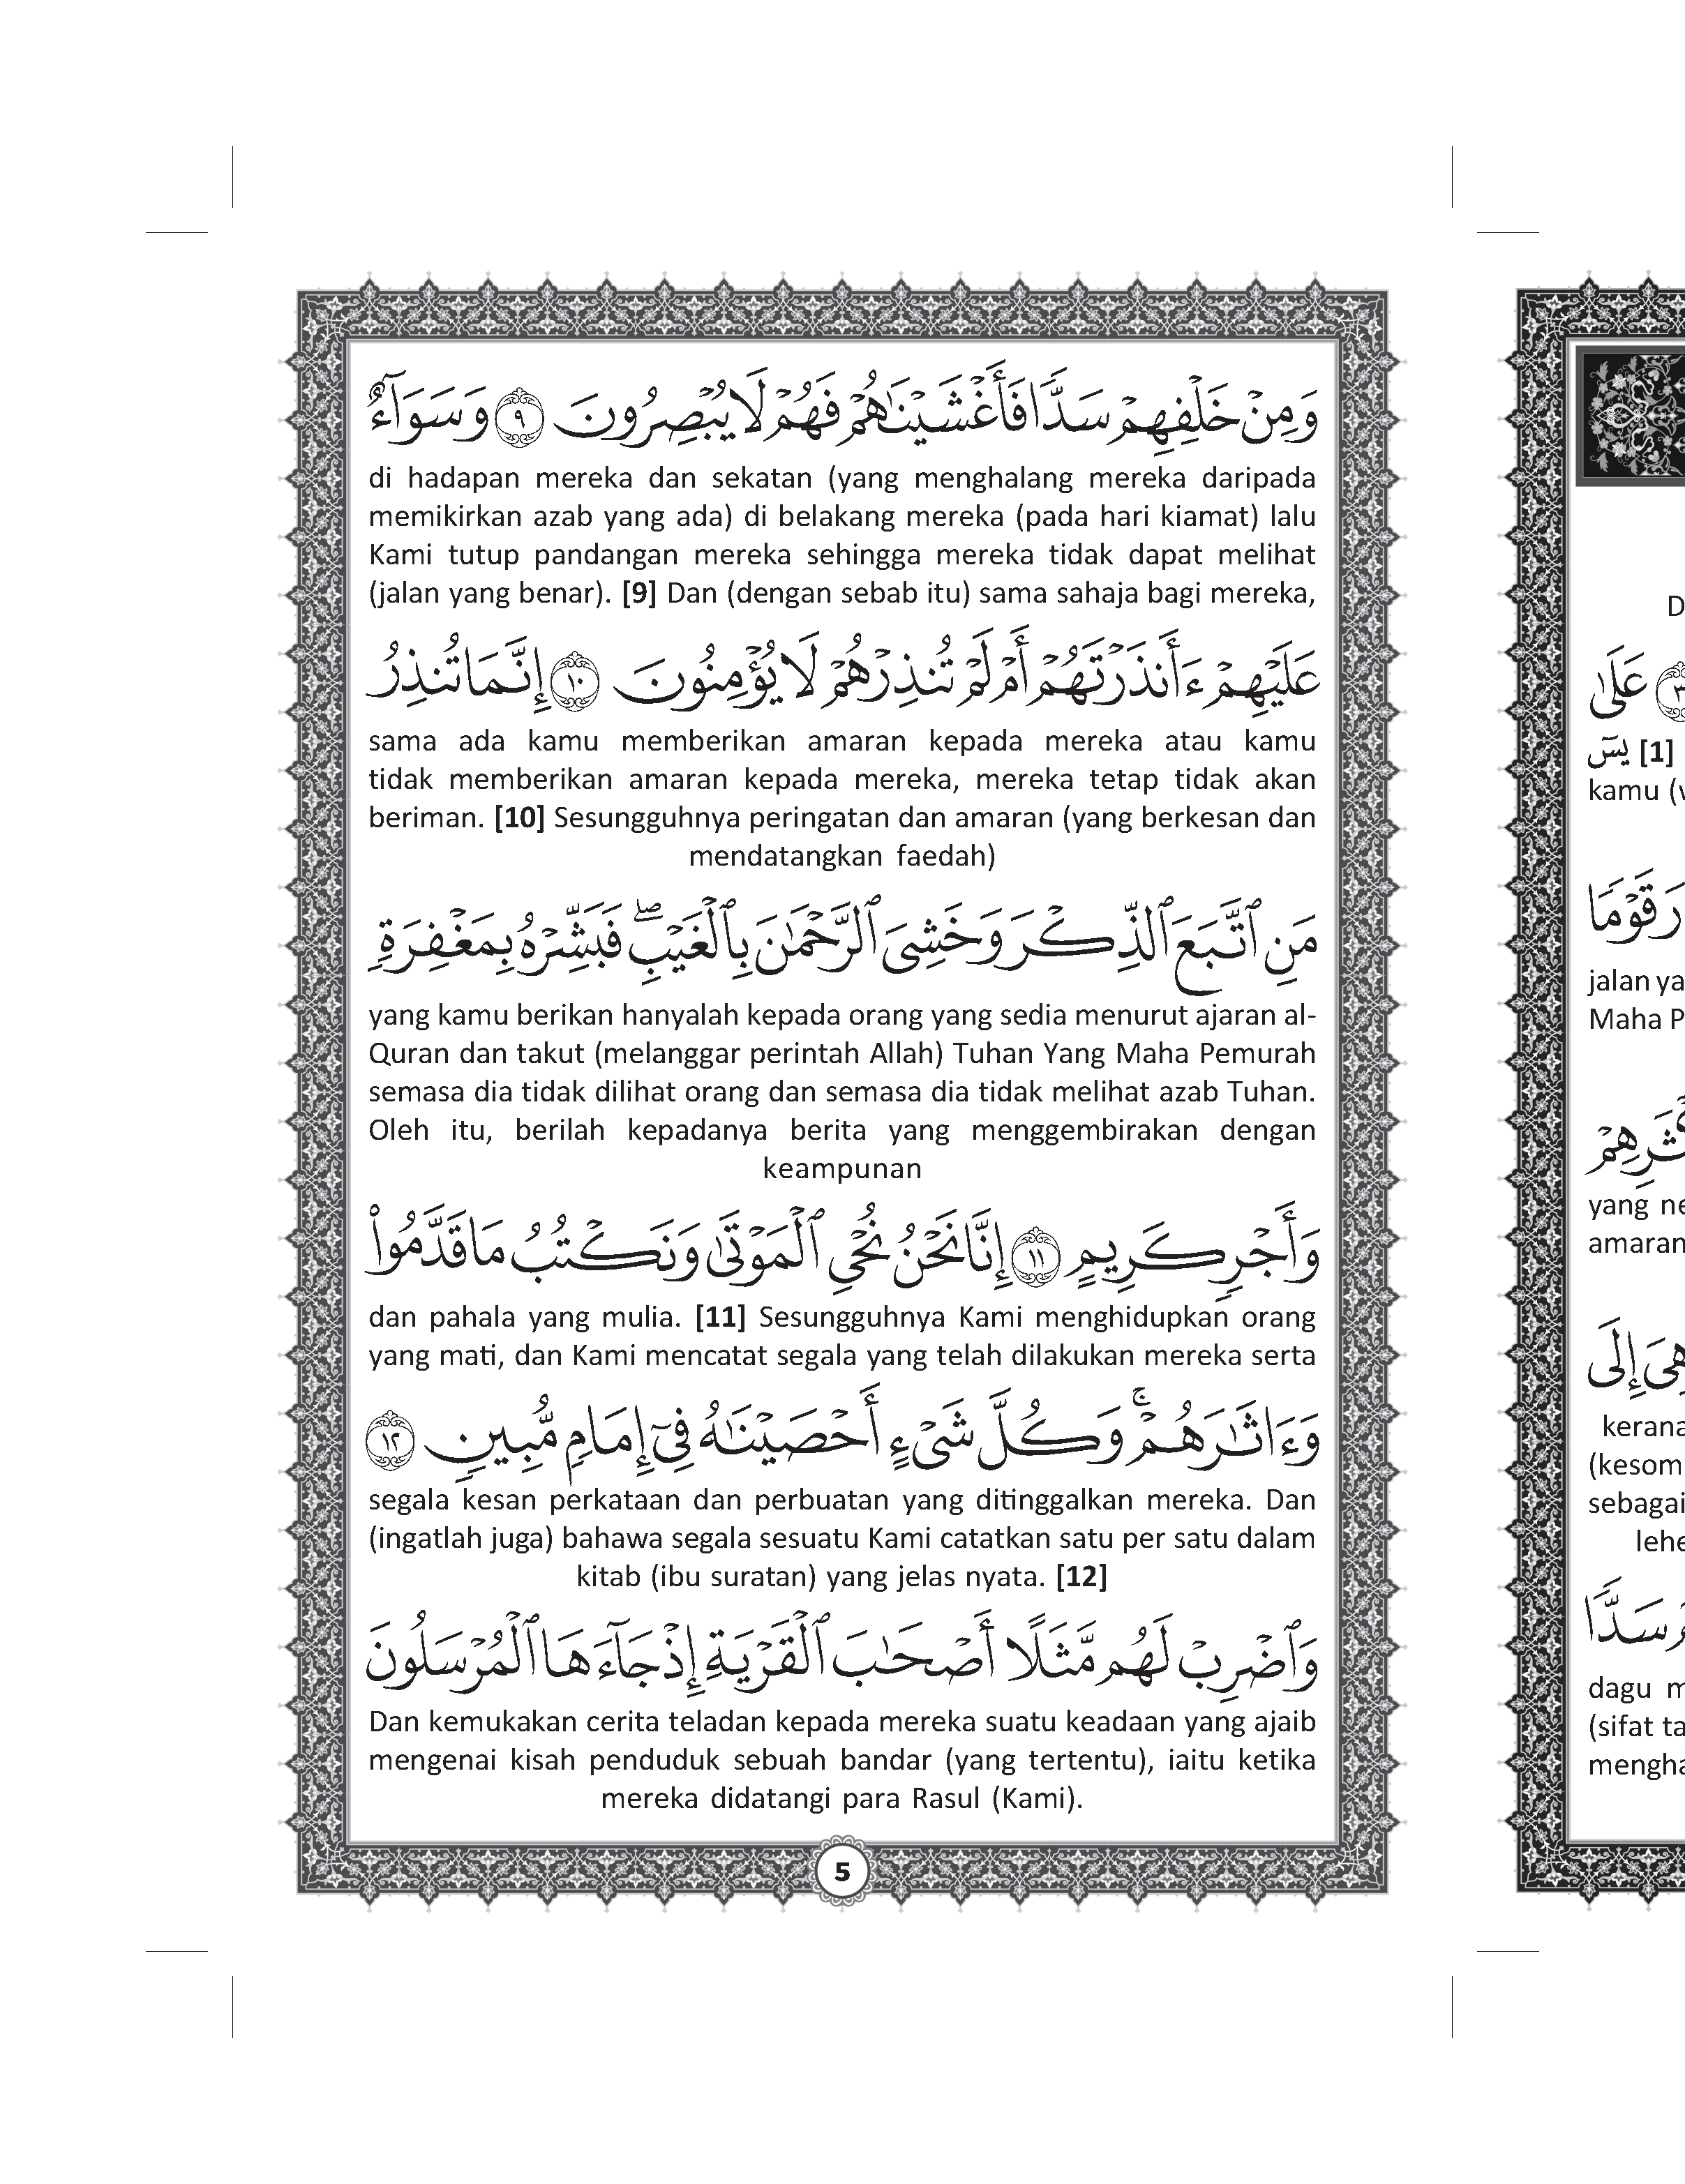 وَمِنْ خَلْفِهِمْ سَدًّا فَأَغْشَيْنَـٰهُمْ فَهُمْ لَا يُبْصِرُونَ ٩ وَسَوَآءٌ
di hadapan mereka dan sekatan (yang menghalang mereka daripada
memikirkan azab yang ada) di belakang mereka (pada hari kiamat) lalu
Kami tutup pandangan mereka sehingga mereka tidak dapat melihat
(jalan yang benar). [9] Dan (dengan sebab itu) sama sahaja bagi mereka,
عَلَيْهِمْ ءَأَنذَرْتَهُمْ أَمْ لَمْ تُنذِرْهُمْ لَا يُؤْمِنُونَ ١٠ إِنَّمَا تُنذِرُ
sama ada kamu memberikan amaran kepada mereka atau kamu
tidak memberikan amaran kepada mereka, mereka tetap tidak akan
beriman. [10] Sesungguhnya peringatan dan amaran (yang berkesan dan
mendatangkan faedah)
مَنِ ٱتَّبَعَ ٱلذِّكْرَ وَخَشِىَ ٱلرَّحْمَـٰنَ بِٱلْغَيْبِ ۖ فَبَشِّرْهُ بِمَغْفِرَةٍ
yang kamu berikan hanyalah kepada orang yang sedia menurut ajaran al-
Quran dan takut (melanggar perintah Allah) Tuhan Yang Maha Pemurah
semasa dia tidak dilihat orang dan semasa dia tidak melihat azab Tuhan.
Oleh itu, berilah kepadanya berita yang menggembirakan dengan
keampunan
وَأَجْرٍ كَرِيمٍ ١١ إِنَّا نَحْنُ نُحْىِ ٱلْمَوْتَىٰ وَنَكْتُبُ مَا قَدَّمُوا۟
dan pahala yang mulia. [11] Sesungguhnya Kami menghidupkan orang
yang mati, dan Kami mencatat segala yang telah dilakukan mereka serta
وَءَاثَـٰرَهُمْ ۚ وَكُلَّ شَىْءٍ أَحْصَيْنَـٰهُ فِىٓ إِمَامٍ مُّبِينٍ ١٢
segala kesan perkataan dan perbuatan yang ditinggalkan mereka. Dan
(ingatlah juga) bahawa segala sesuatu Kami catatkan satu per satu dalam
kitab (ibu suratan) yang jelas nyata. [12]
وَٱضْرِبْ لَهُم مَّثَلًا أَصْحَـٰبَ ٱلْقَرْيَةِ إِذْ جَآءَهَا ٱلْمُرْسَلُونَ
Dan kemukakan cerita teladan kepada mereka suatu keadaan yang ajaib
mengenai kisah penduduk sebuah bandar (yang tertentu), iaitu ketika
mereka didatangi para Rasul (Kami).
5
D
٣ عَلَىٰ
يسٓ [1]
kamu (
قَوْمًا
jalan ya
Maha P
yang ne
amaran
هِىَ إِلَى
kerana
(kesom
sebagai
lehe
سَدًّا
dagu m
(sifat ta
mengha